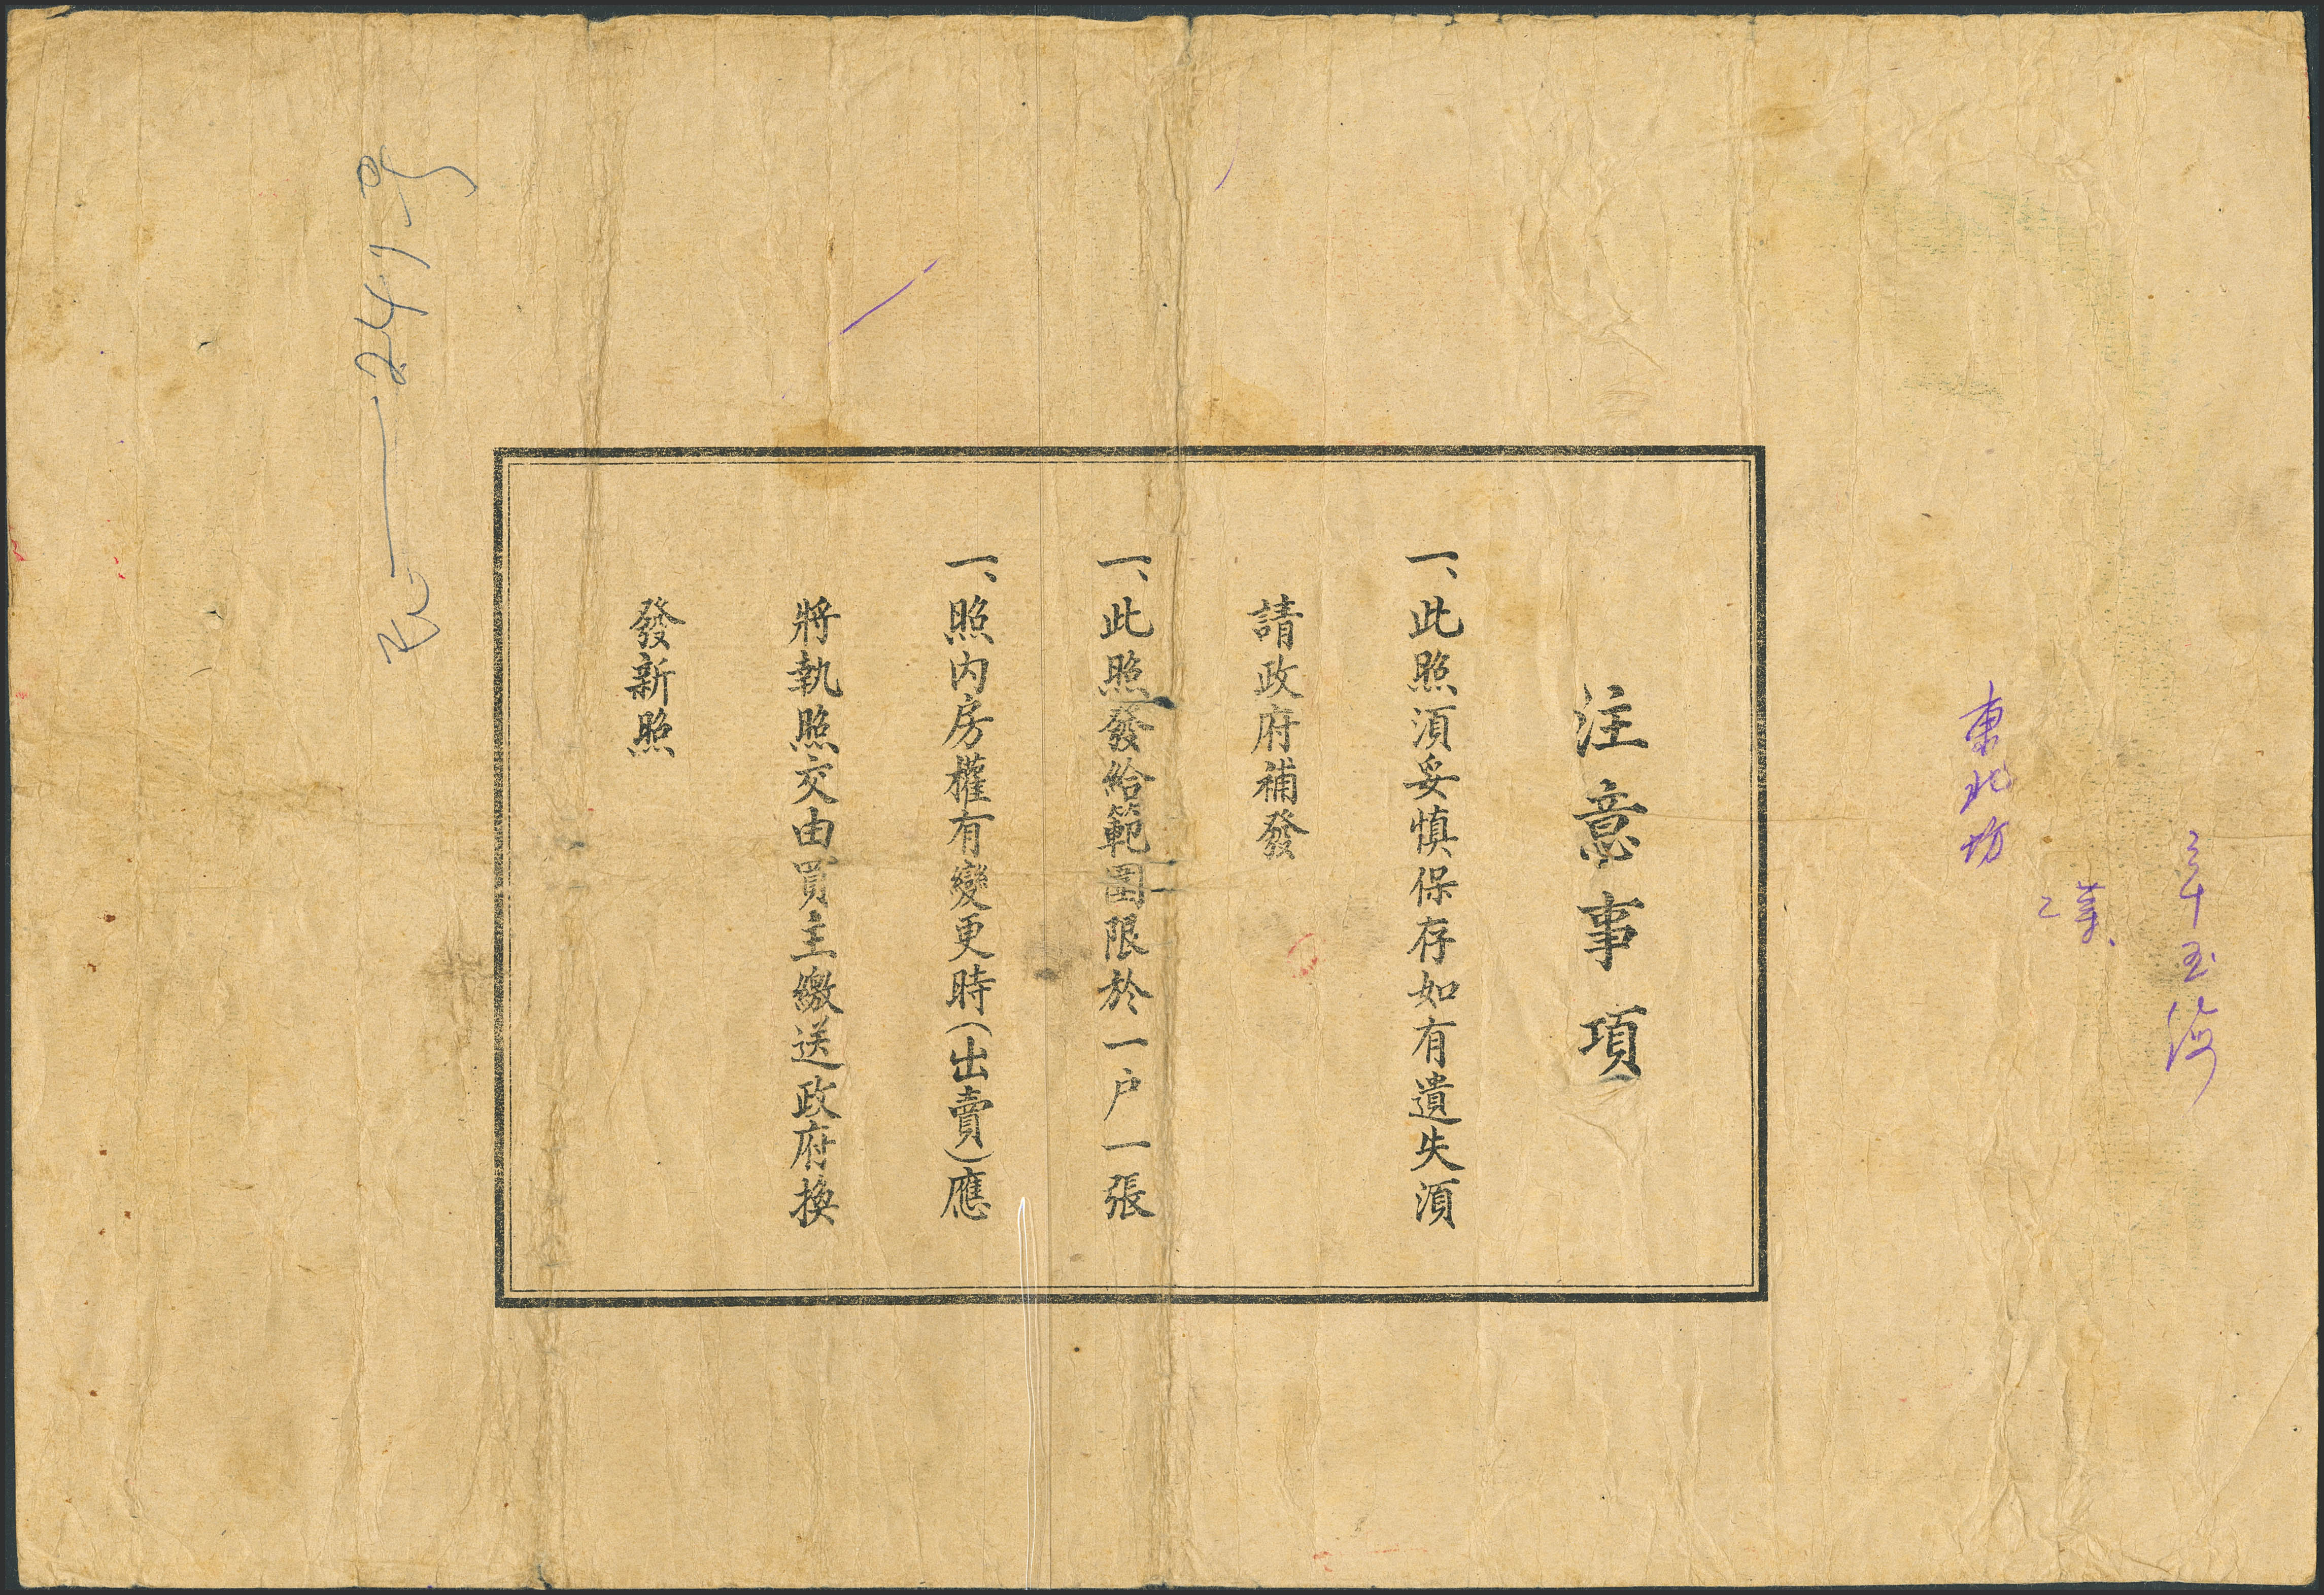 東北坊
注意事項
一、此照湏妥慎保存如有遺失湏
請政府補發
一、此照發給範圍限於一户一張
一、照內房權有變更時(出賣)應
將執照交由買主繳送政府換
發新照
2411号